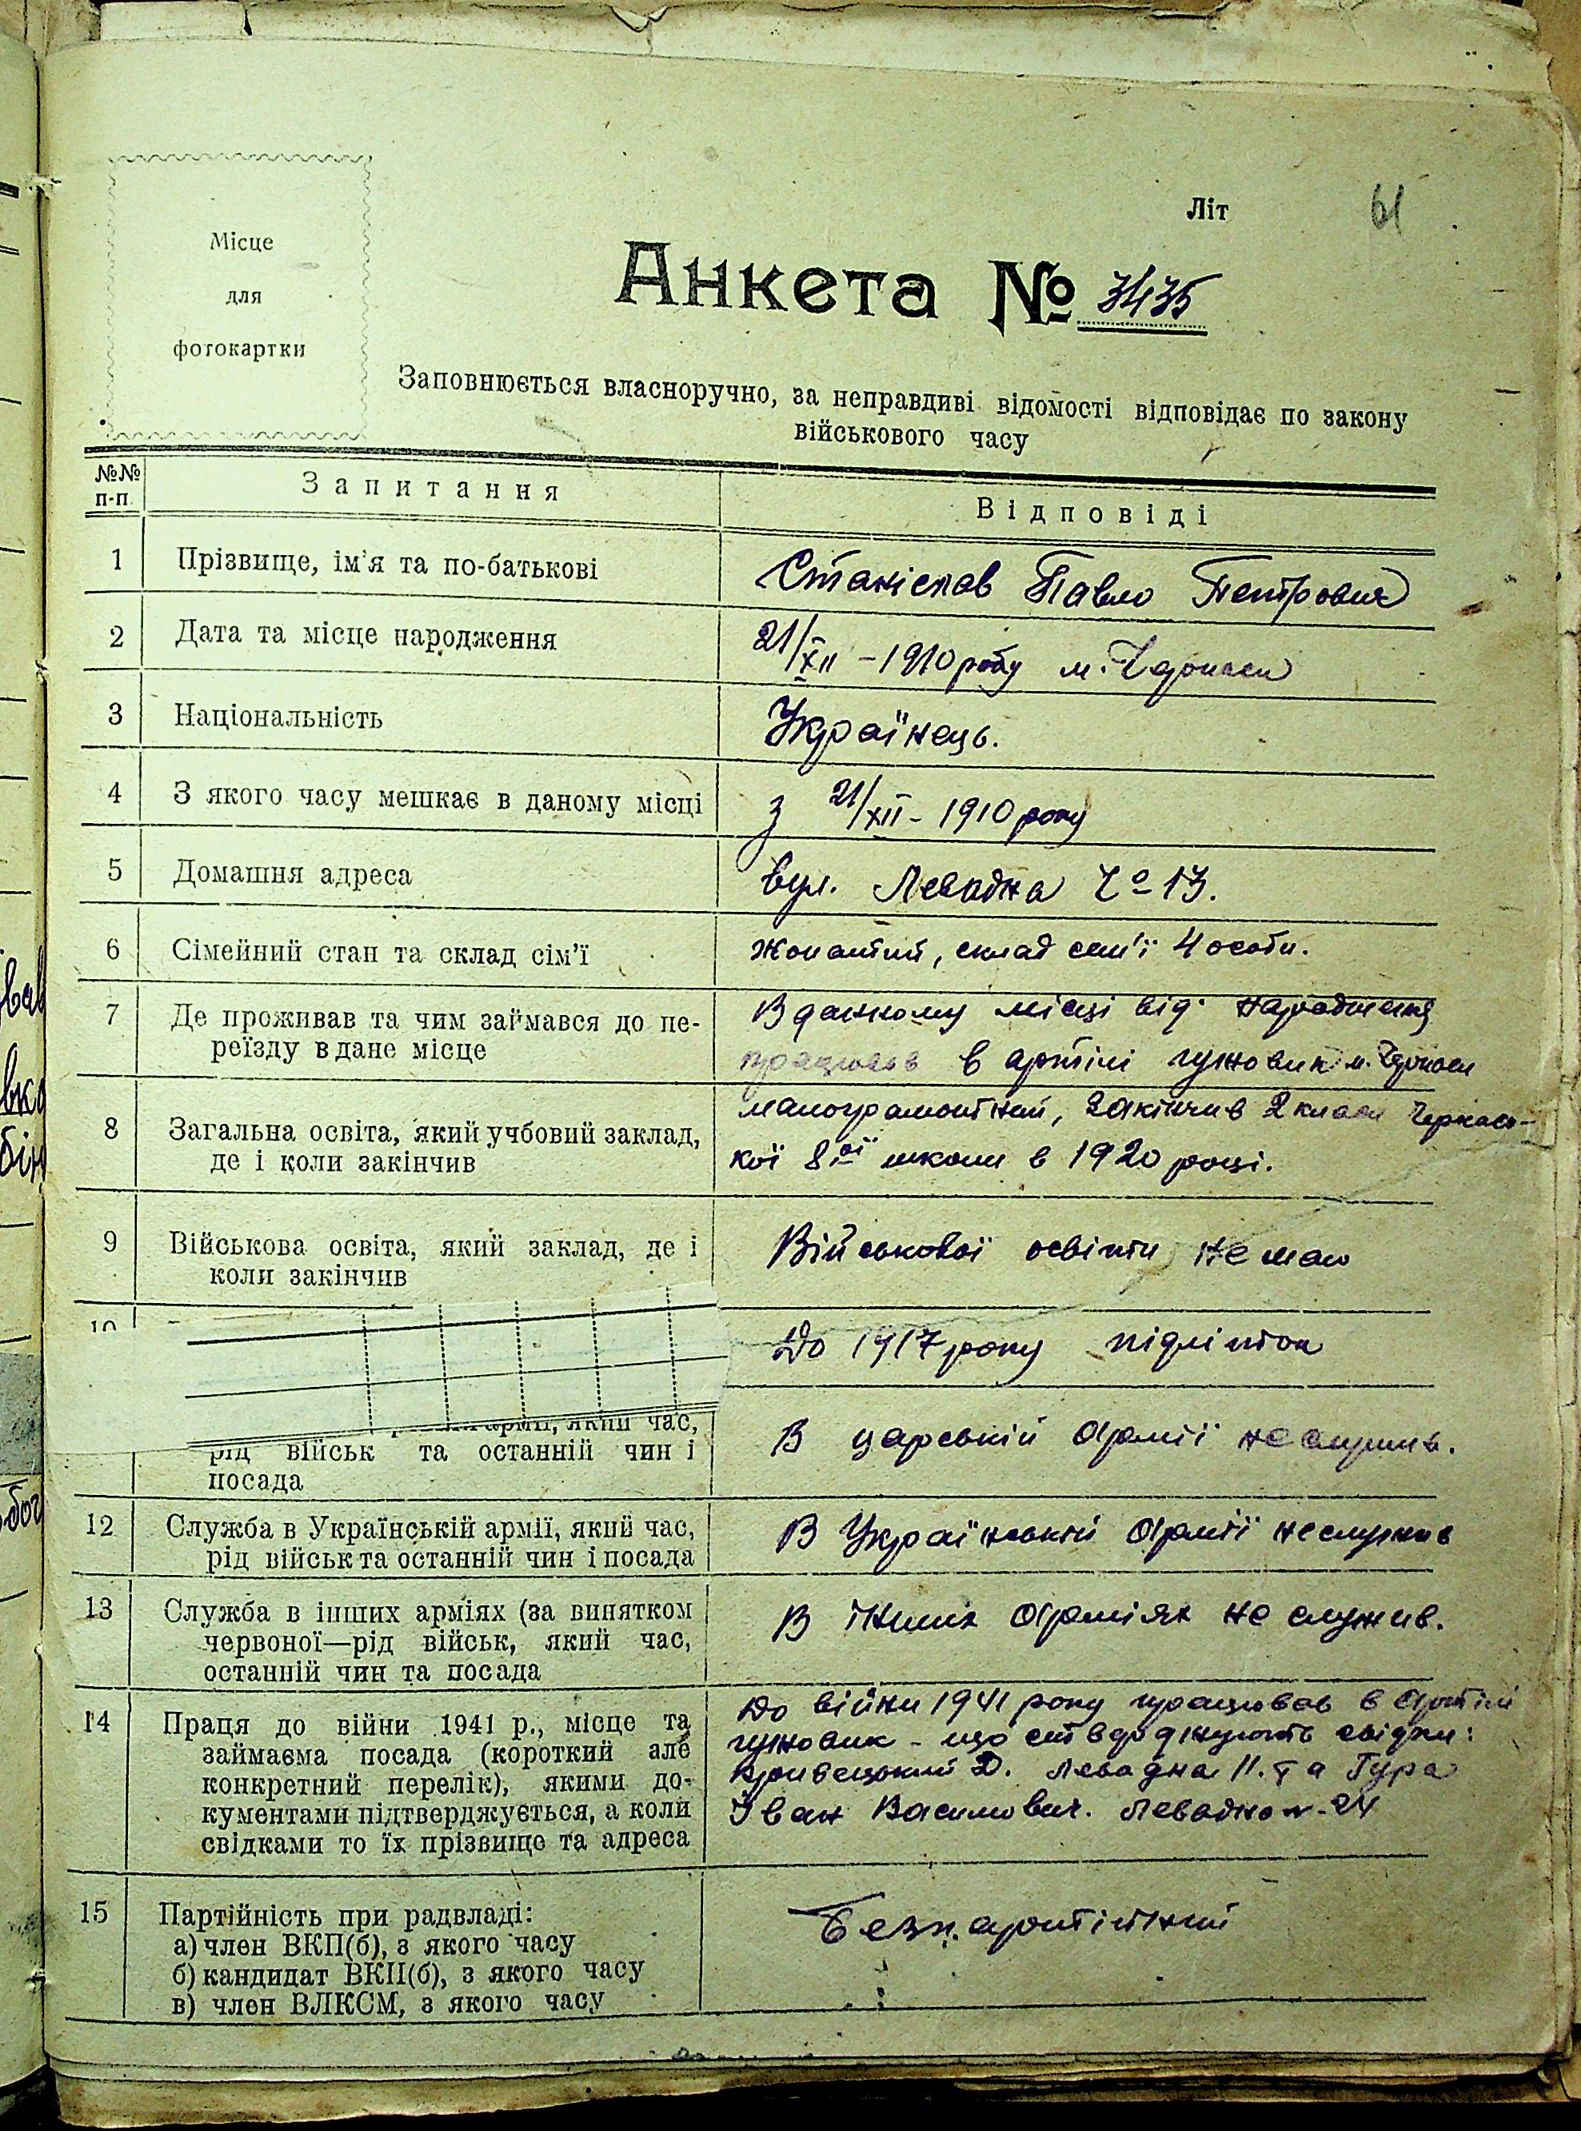 Літ
61
Місце
для
фотокартки
Анкета № 3435
Заповнюється власноручно, за неправдиві відомості відповідає по закону
військового часу
№№
п-п
Запитання
Відповіді
1
Прізвище, ім'я та по-батькові
Станіслав Павло Петрович
2
Дата та місце народження
21/XII – 1910 року м. Черкаси
3
Національність
Українець.
4
З якого часу мешкає в даному місці
З 21/XII – 1910 року
5
Домашня адреса
вул. Левадна Чо 13.
6
Сімейний стан та склад сім'ї
Жонатий, склад сем'ї 4 особи.
7
Де проживав та чим займався до пе-
реїзду в дане місце
В данному місці від народження
працював в артілі гужовик м. Черкаси
8
Загальна освіта, який учбовий заклад,
де і коли закінчив
малограмотний, закінчив 2 класи Черкась-
кої 8ої школи в 1920 році.
9
Військова освіта, який заклад, де і
коли закінчив
Військової освіти не маю
10
До 1917 року підліток
армії, який час,
рід військ та останній чин і
посада
В царській армії не служив.
12
Служба в Українській армії, який час,
рід військ та останній чин і посада
В Українській армії не служив
13
Служба в інших арміях (за винятком
червоної—рід військ, який час,
останній чин та посада
В інших арміях не служив.
14
Праця до війни 1941 р., місце та
займаєма посада (короткий але
конкретний перелік), якими до-
кументами підтверджується, а коли
свідками то їх прізвище та адреса
До війни 1941 року працював в артілі
гужовик – що стверджують свідки:
Кривецький Д. Левадна 11. та Гура
Іван Василович. Левадна №-24
15
Партійність при радвладі:
а) член ВКП(б), з якого часу
б) кандидат ВКП(б), з якого часу
в) член ВЛКСМ, з якого часу
Безпартійний